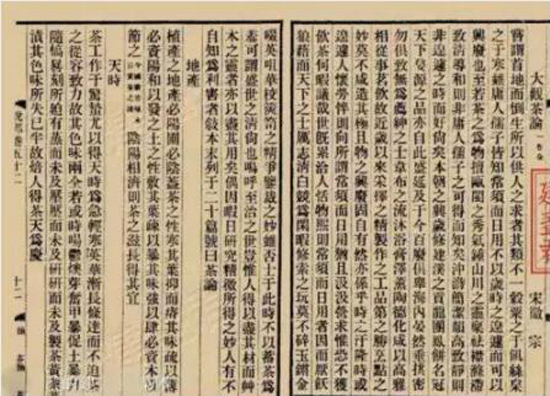 大觀茶論 一卷全
宋徽宗
嘗謂首地而倒生所以供人之求者其類不一穀粟之于飢絲枲
之于寒雖庸人孺子皆知常須而日用不以歲時之遑遽而可以
興廢也至若茶之為物擅甌閩之秀氣鍾山川之靈稟袪襟滌滯
致清導和則非庸人孺子之可得而知矣沖澹簡潔韻高致靜則
非遑遽之時而好尚矣本朝之興歲修建溪之貢龍團鳳餅名冠
天下壑源之品亦自此盛延及于今百廢俱舉海內晏然垂拱密
勿俱致無為薦紳之士韋布之流沐浴膏澤薰陶德化咸以高雅
相從事茗飲故近歲以來采擇之精製作之工品第之勝烹點之
妙莫不咸造其極且物之興廢固自有然亦係乎時之汙隆時或
遑遽人懷勞悴則向所謂常須而日用猶且汲汲營求惟恐不獲
飲茶何暇議哉世既累洽人恬物熙則常須而日用者因而厭飫
狼藉而天下之士厲志清白競為閑暇修索之玩莫不碎玉鏘金
啜英咀華校篋笥之精爭鑒裁之妙雖否士于此時不以蓄茶為
羞可謂盛世之清尚也嗚呼至治之世豈惟人得以盡其材而艸
木之靈者亦以盡其用矣偶因暇日研究精微所得之妙人有不
自知為利害者敘本末列于二十篇號曰茶論
地產
植產之地崖必陽圃必陰蓋茶之性寒其葉抑而瘠其味疏以薄
必資陽和以發之土之性敷其葉疎以暴其味強以肆必資木以
節之
陰陽相濟則茶之滋長得其宜
天時
茶工作于驚蟄尤以得天時為急輕寒英華漸長條達而不迫茶
工從容致力故其色味兩全若或時暘鬱燠芽奮甲暴促工暴力
隨槁晷刻所迫有蒸而未及壓壓而未及研研而未及製茶黃
漬其色味所失已半故焙人得茶天為慶
說郛卷五十二
十二